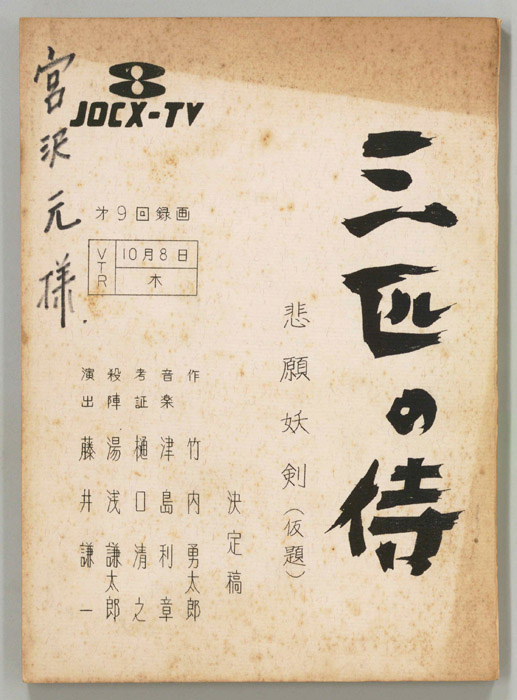 三匹の侍
悲願妖剣(仮題)
決定稿
作 竹内勇太郎
音楽 津島利章
考証 樋口清之
殺陣 湯浅謙太郎
演出 藤井謙一
8
JOCX-TV
才9回録画
VTR
10月8日
木
宮沢元様.